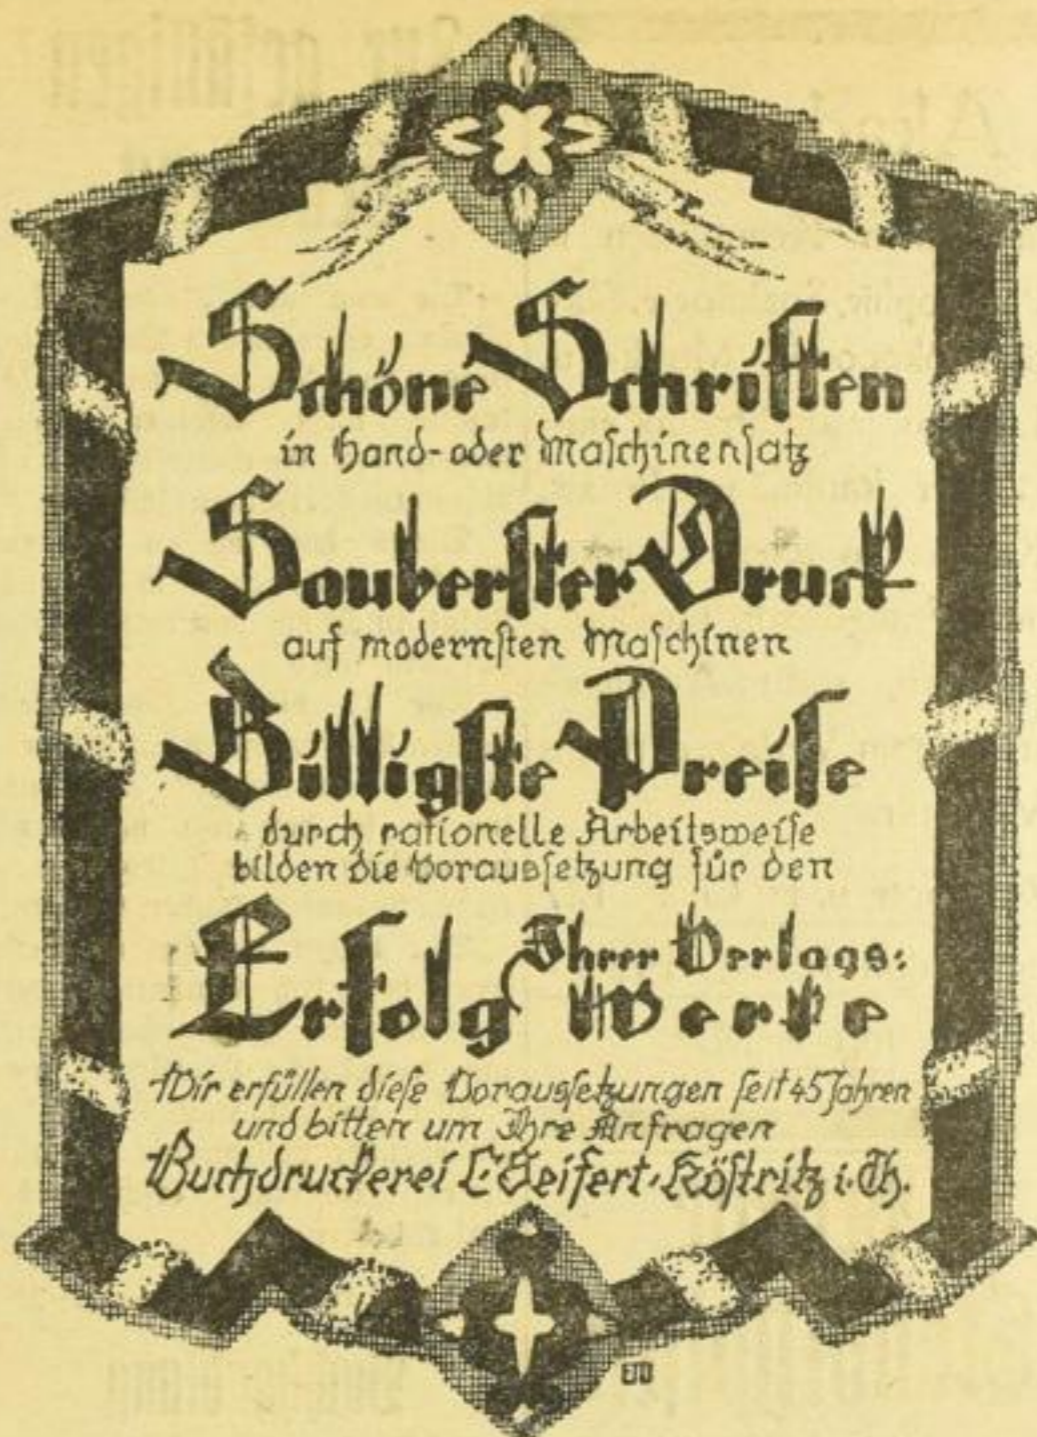 Schöne Schriften
in Hand- oder Maschinensatz
Sauberster Druck
auf modernsten Maschinen
Billigste Preise
durch rationelle Arbeitsweise
bilden die Voraussetzung für den
Erfolg Ihrer Verlags-
Werke
Wir erfüllen diese Voraussetzungen seit 45 Jahren
und bitten um Ihre Anfragen
Buchdruckerei C. Seifert, Köstritz i. Th.